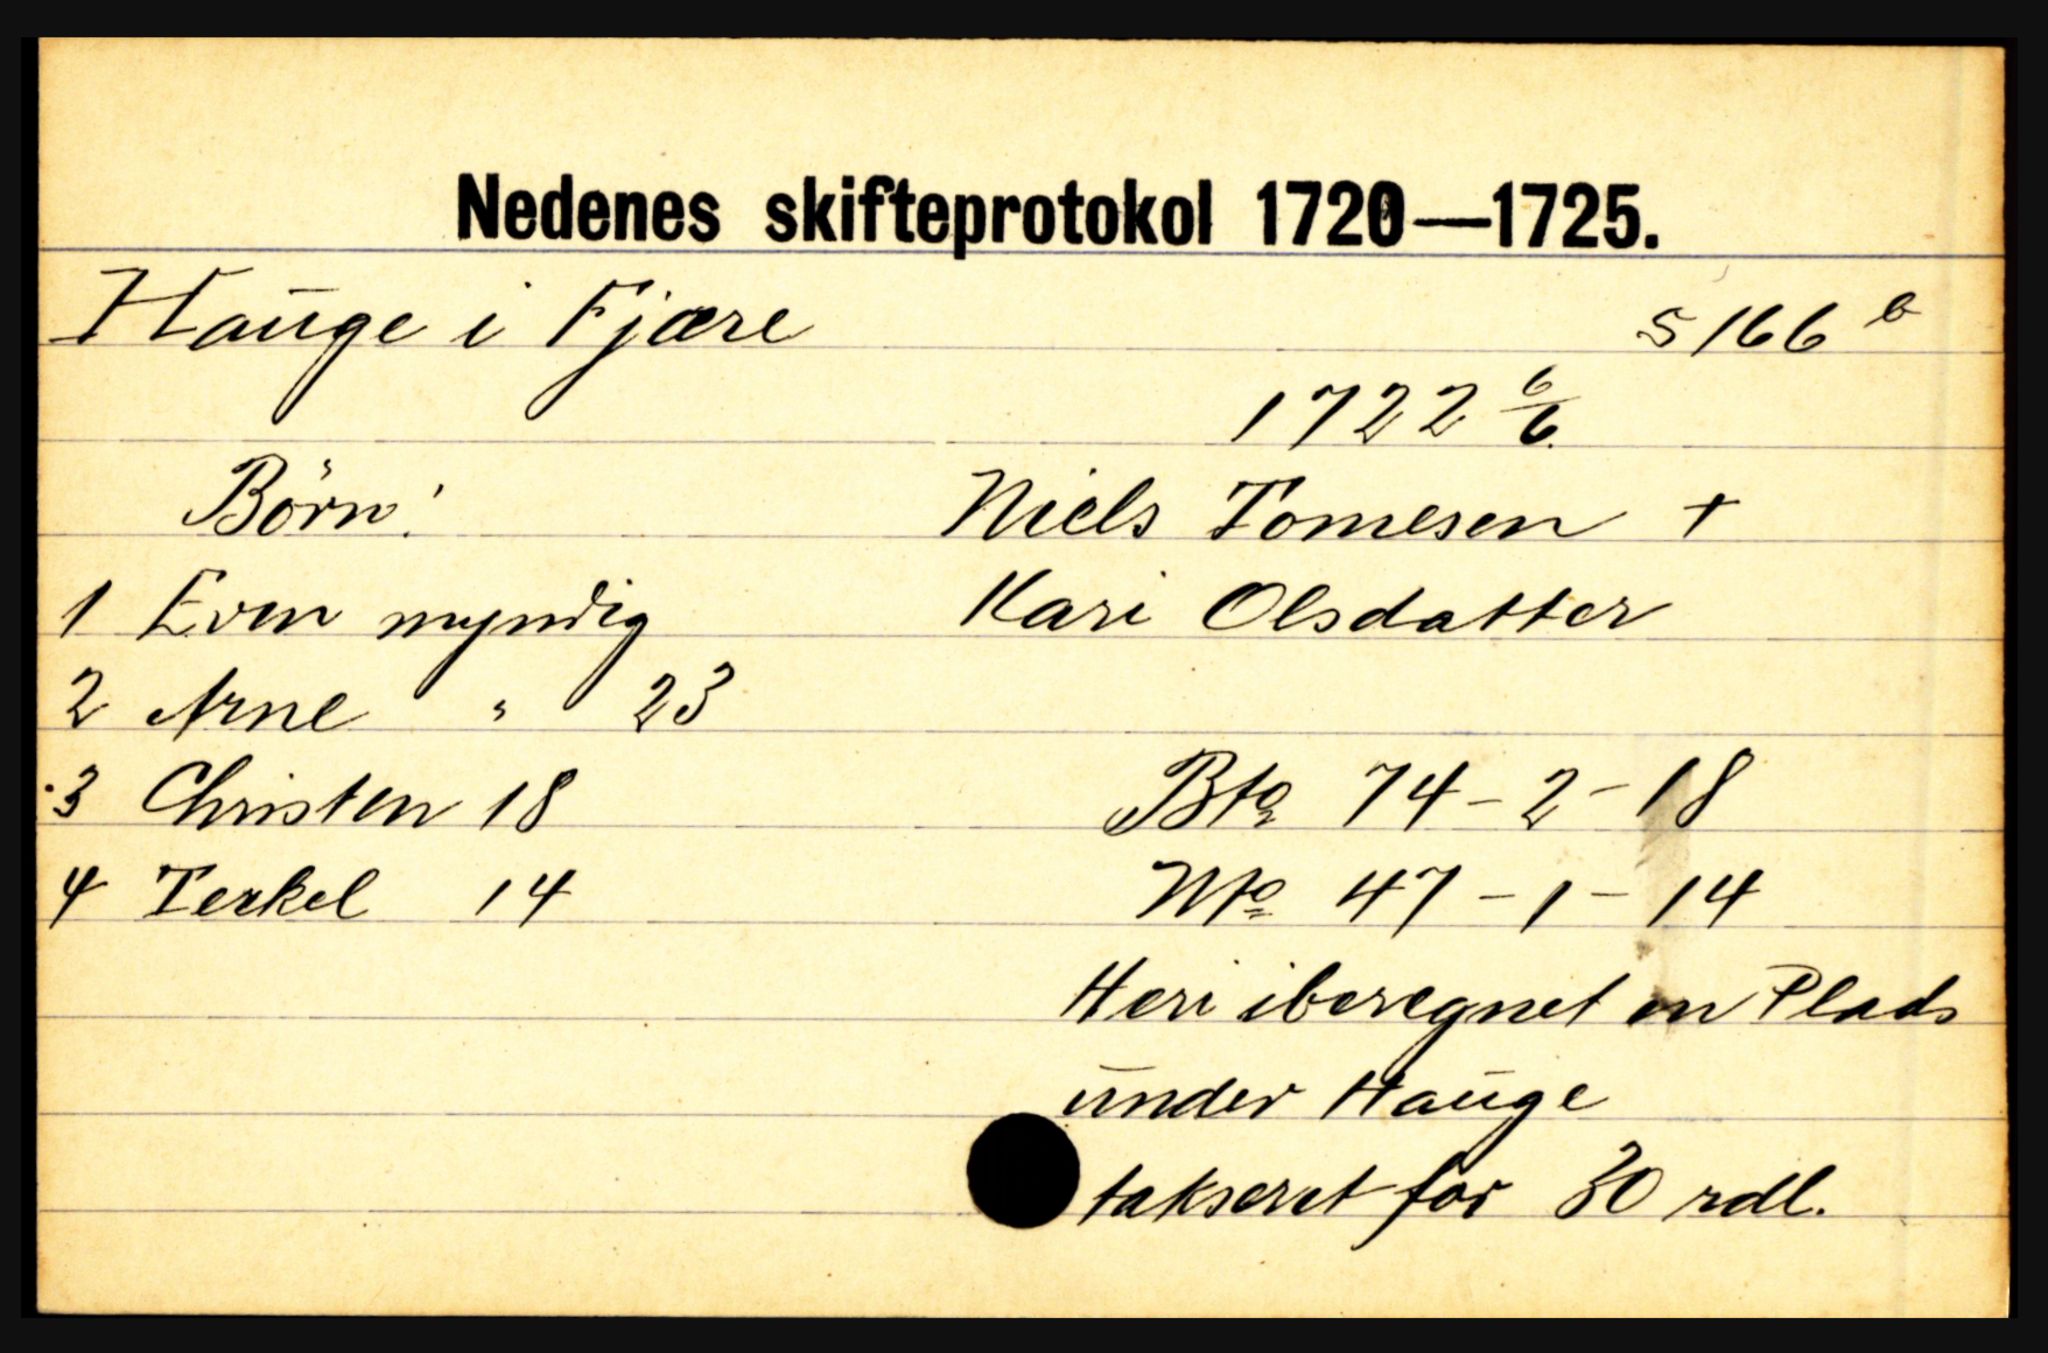 Nedenes skifteprotokol 1720—1725.
Hauge i Fjære S 166 b
1722 6/6
Børn: Niels Tomesen +
1 Even myndig Kari Olsdatter
2 Arne " 23
3 Christen 18 Bto 74 - 2 - 18
4 Terkel 14 Nto 47 - 1 - 14
Heri iberegnet en Plads
under Hauge
takseret for 30 rdl.